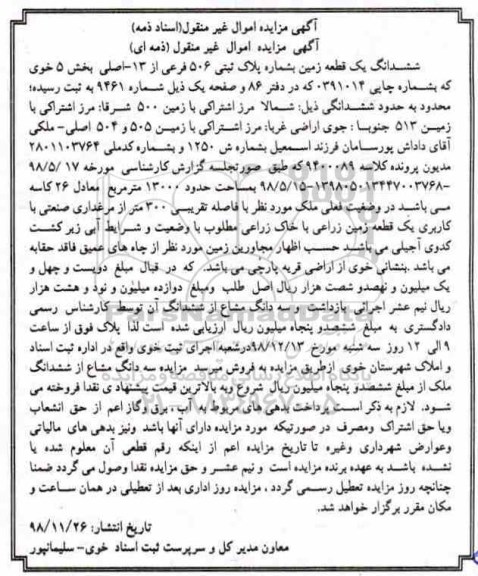 آگهی مزایده اموال غیر منقول(اسناد ذمه)
آگهی مزایده اموال غیر منقول (ذمه ای)
ششدانگ یک قطعه زمین بشماره پلاک ثبتی ۵۰۶ فرعی از ۱۳-اصلی بخش ۵ خوی
که بشماره چاپی ۰۳۹۱۰۱۴ که در دفتر ۸۶ و صفحه یک ذیل شماره ۹۴۶۱ به ثبت رسیده؛
محدود به حدود ششدانگی ذیل: شمالا مرز اشتراکی با زمین ۵۰۰ شرقا: مرز اشتراکی با
زمین ۵۱۳ جنوبا : جوی اراضی غربا: مرز اشتراکی با زمین ۵۰۵ و ۵۰۴ اصلی- ملکی
آقای داداش پورسامان فرزند اسمعیل بشماره ش ۱۲۵۰ و بشماره کدملی ۲۸۰۱۱۰۳۷۶۴
مدیون پرونده کلاسه ۹۴۰۰۰۸۹ که طبق صورتجلسه گزارش کارشناسی مورخه ۹۸/۵/۱۷
-۱۳۹۸۰۵۰۱۳۴۴۷۰۰۳۷۶۸-۹۸/۵/۱۵ بمساحت حدود ۱۳۰۰۰ مترمربع معادل ۲۶ کاسه
می باشد در وضعیت فعلی ملک مورد نظر با فاصله تقریبی ۳۰۰ متر از مرغداری صنعتی با
کاربری یک قطعه زمین زراعی با خاک زراعی مطلوب با وضعیت و شرایط آبی زیر کشت
کدوی آجیلی می باشد حسب اظهار مجاورین زمین مورد نظر از چاه های عمیق فاقد حقابه
می باشد .بنشانی خوی از اراضی قریه پارچی می باشد. که در قبال مبلغ دویست و چهل و
یک میلیون و نهصدو شصت هزار ریال اصل طلب ومبلغ دوازده میلیون و نود و هشت هزار
ریال نیم عشر اجرائی بازداشت و سه دانگ مشاع از ششدانگ آن توسط کارشناس رسمی
دادگستری به مبلغ ششصدو پنجاه میلیون ریال ارزیابی شده است لذا پلاک فوق از ساعت
۹ الی ۱۲ روز سه شنبه مورخ ۹۸/۱۲/۱۳ درشعبه اجرای ثبت خوی واقع در اداره ثبت اسناد
و املاک شهرستان خوی ازطریق مزایده به فروش میرسد مزایده سه دانگ مشاع از ششدانگ
ملک از مبلغ ششصدو پنجاه میلیون ریال شروع وبه بالاترین قیمت پیشنهادی نقدا فروخته می
شود. لازم به ذکر است پرداخت بدهی های مربوط به آب، برق وگاز اعم از حق انشعاب
ویا حق اشتراک ومصرف در صورتیکه مورد مزایده دارای آنها باشد ونیز بدهی های مالیاتی
وعوارض شهرداری وغیره تا تاریخ مزایده اعم از اینکه رقم قطعی آن معلوم شده یا
نشده باشد به عهده برنده مزایده است و نیم عشر و حق مزایده نقدا وصول می گردد ضمنا
چنانچه روز مزایده تعطیل رسمی گردد ، مزایده روز اداری بعد از تعطیلی در همان ساعت و
مکان مقرر برگزار خواهد شد.
تاریخ انتشار: ۹۸/۱۱/۲۶
معاون مدیر کل و سرپرست ثبت اسناد خوی- سلیمانپور